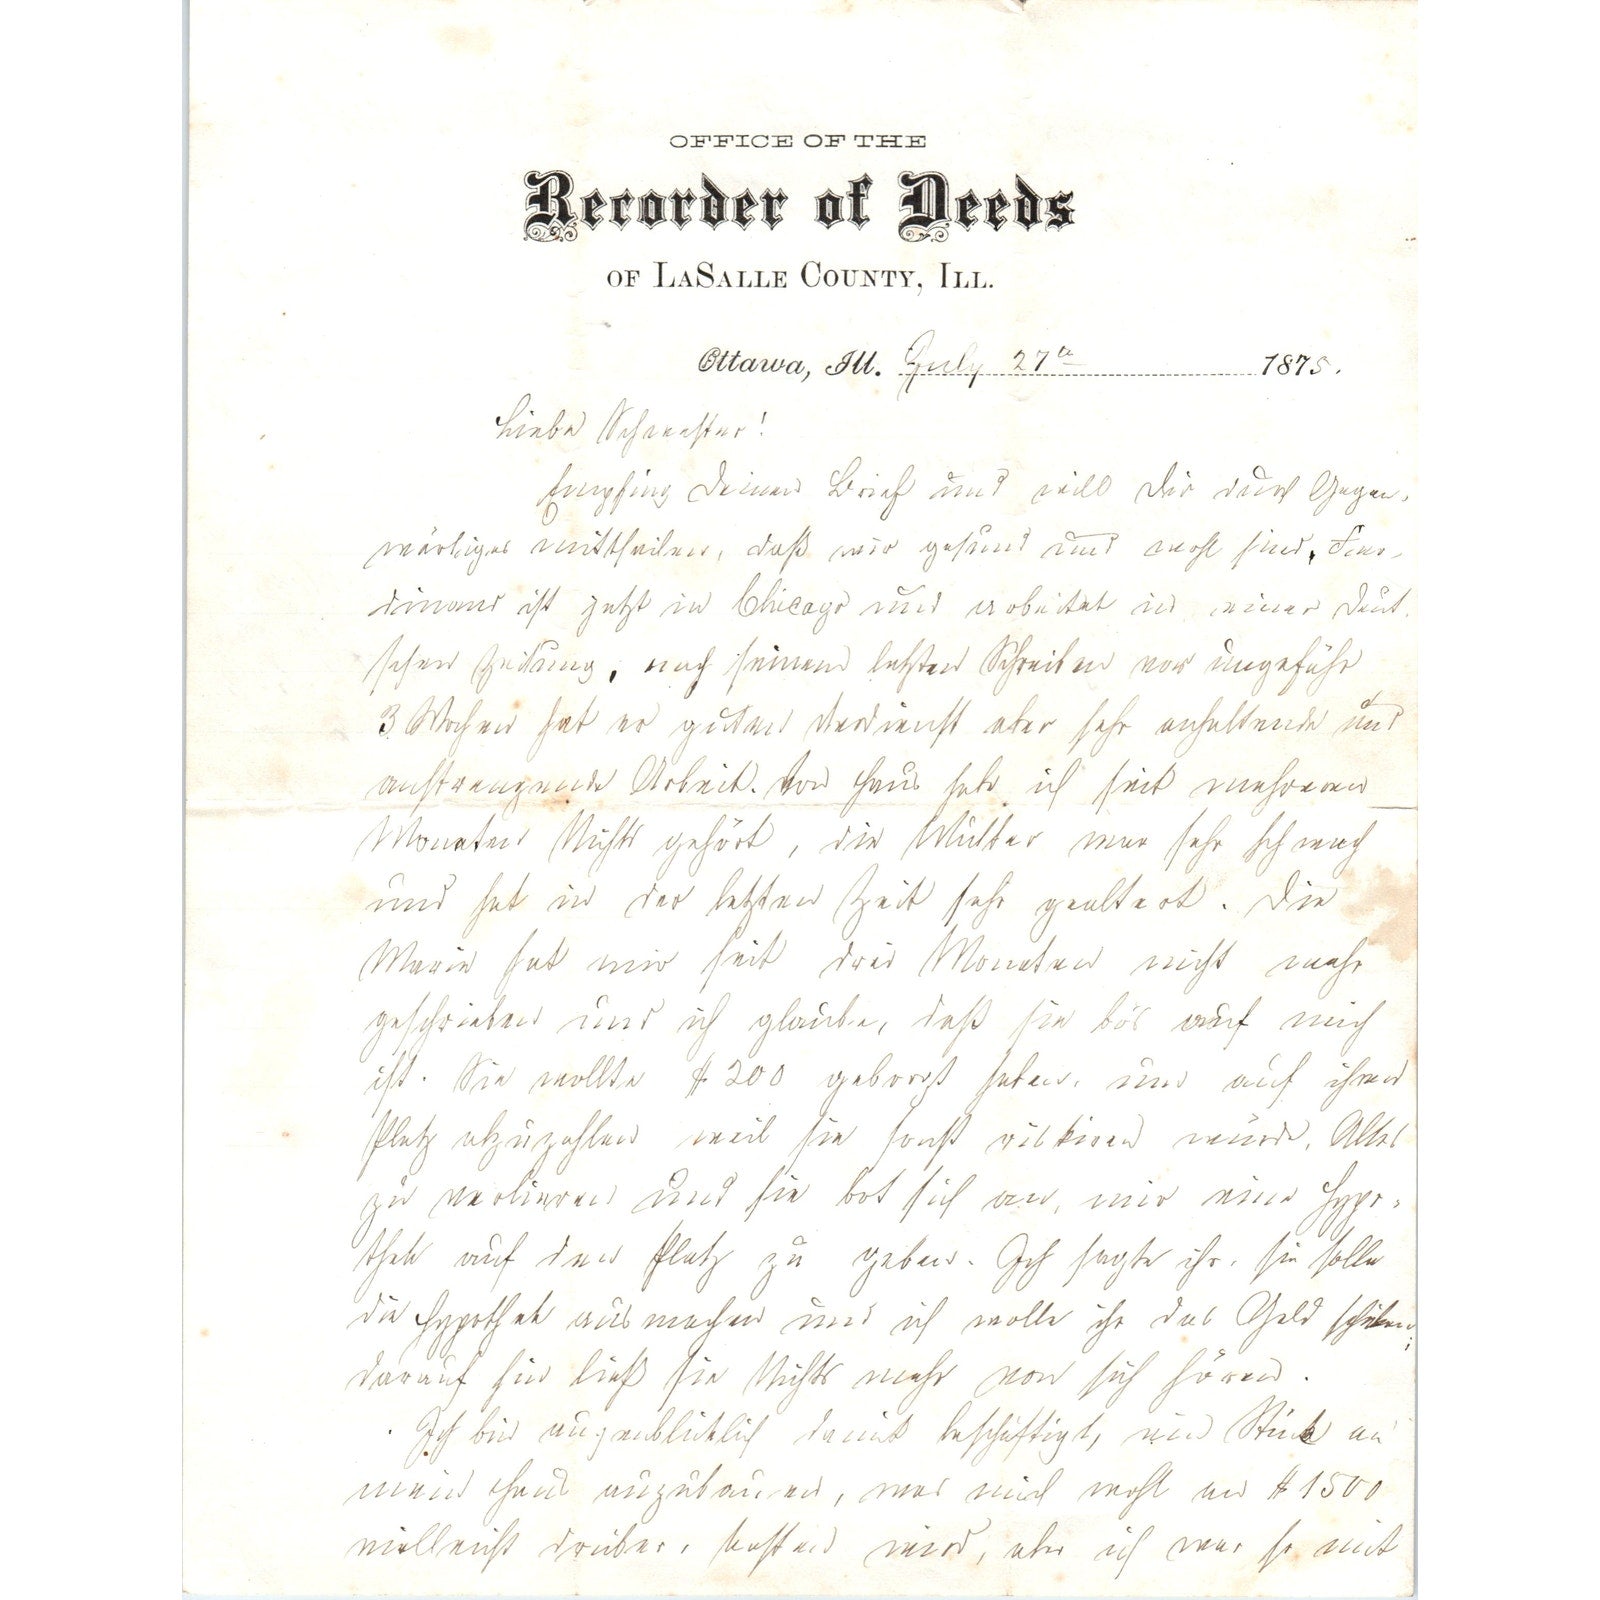 OFFICE OF THE
Recorder of Deeds
OF LASALLE COUNTY, ILL.
Ottawa, Ill. July 27th 1875.
Liebe Schwester!
Empfing Deinen Brief und will Dir durch Gegen-
wärtiges mittheilen, daß wir gesund und wohl sind, Fer-
dinand ist jetzt in Chicago und arbeitet in einer Deut-
schen Zeitung, nach seinem letzten Schreiben vor ungefähr
3 Wochen hat er guten Verdienst aber sehr anhaltende und
anstrengende Arbeit. Von Haus habe ich seit mehreren
Monaten Nichts gehört, die Mutter war sehr schwach
und hat in der letzten Zeit sehr gealtert. Die
Marie hat mir seit drei Monaten nicht mehr
geschrieben und ich glaube, daß sie bös auf mich
ist. Sie wollte $200 geborgt haben, um auf ihren
Platz abzuzahlen weil sie sonst riskiren würde, Alles
zu verlieren und sie bot sich an, mir eine Hypo-
thek auf den Platz zu geben. Ich sagte ihr, sie solle
die Hypothek ausmachen und ich wolle ihr das Geld schicken;
darauf hin ließ sie Nichts mehr von sich hören.
Ich bin augenblicklich damit beschäftigt, ein Stück an
mein Haus anzubauen, was mich wohl an $1500
vielleicht drüber, kosten wird, aber ich war so mit